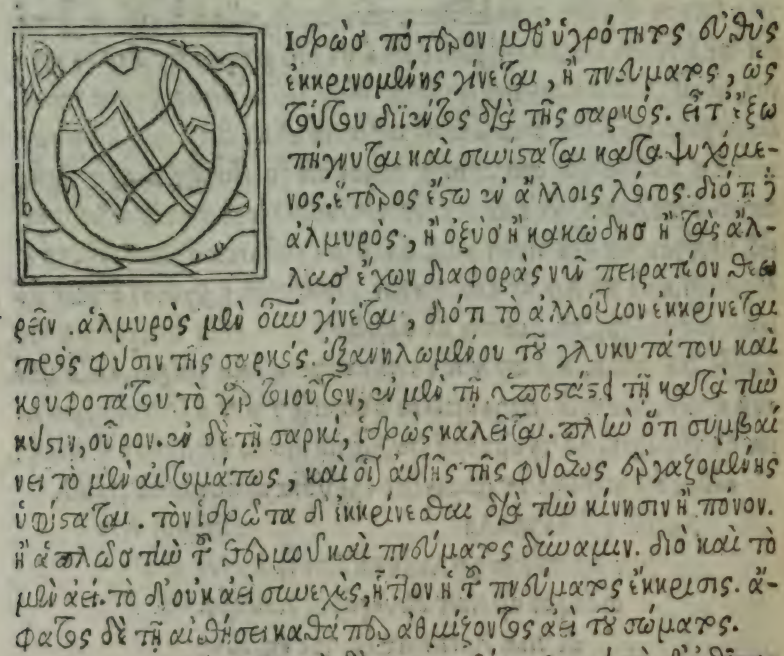 Ο Ιδρὼσ πότερον μεθ' ὑγρότητος εὐθὺς
ἐκκρινομένης γίνεται, ἢ πνεύματος, ὡς
τούτου διϊόντος διὰ τῆς σαρκός. εἶτ' ἔξω
πήγνυται καὶ συνίσταται καταψυχόμε-
νος. ἕτερος ἔστω ἐν ἄλλοις λόγος. διότι δὲ
ἁλμυρὸς, ἢ ὀξὺσ ἢ κακώδησ ἢ τὰς ἄλ-
λασ ἔχων διαφορὰς νῦν πειρατέον θεω
ρεῖν. ἁλμυρὸς μὲν οὖν γίνεται, διότι τὸ ἀλλότριον ἐκκρίνεται
πρὸς φύσιν τῆς σαρκός. ἐξανηλωμένου τοῦ γλυκυτάτου καὶ
κουφοτάτου. τὸ γὰρ τοιοῦτον, ἐν μὲν τῇ ὑποστάσει τῇ κατὰ τὴν
κύσιν, οὖρον. ἐν δὲ τῇ σαρκὶ, ἱδρὼς καλεῖται. πλὴν ὅτι συμβαί
νει τὸ μὲν αὐτομάτως, καὶ ὑπ' αὐτῆς τῆς φύσεως ἐργαζομένης
ὑφίσταται. τὸν ἱδρῶτα δ' ἐκκρίνεσθαι διὰ τὴν κίνησιν ἢ πόνον.
ἢ ἁπλῶσ τὴν τοῦ θερμοῦ καὶ πνεύματος δύναμιν. διὸ καὶ τὸ
μὲν ἀεὶ. τὸ δ' οὐκ ἀεὶ συνεχὲς, ἧττον ἡ τοῦ πνεύματος ἔκκρισις. ἄ-
φατος δὲ τῇ αἰσθήσει καθάπερ ἀθμίζοντος ἀεὶ τοῦ σώματος.